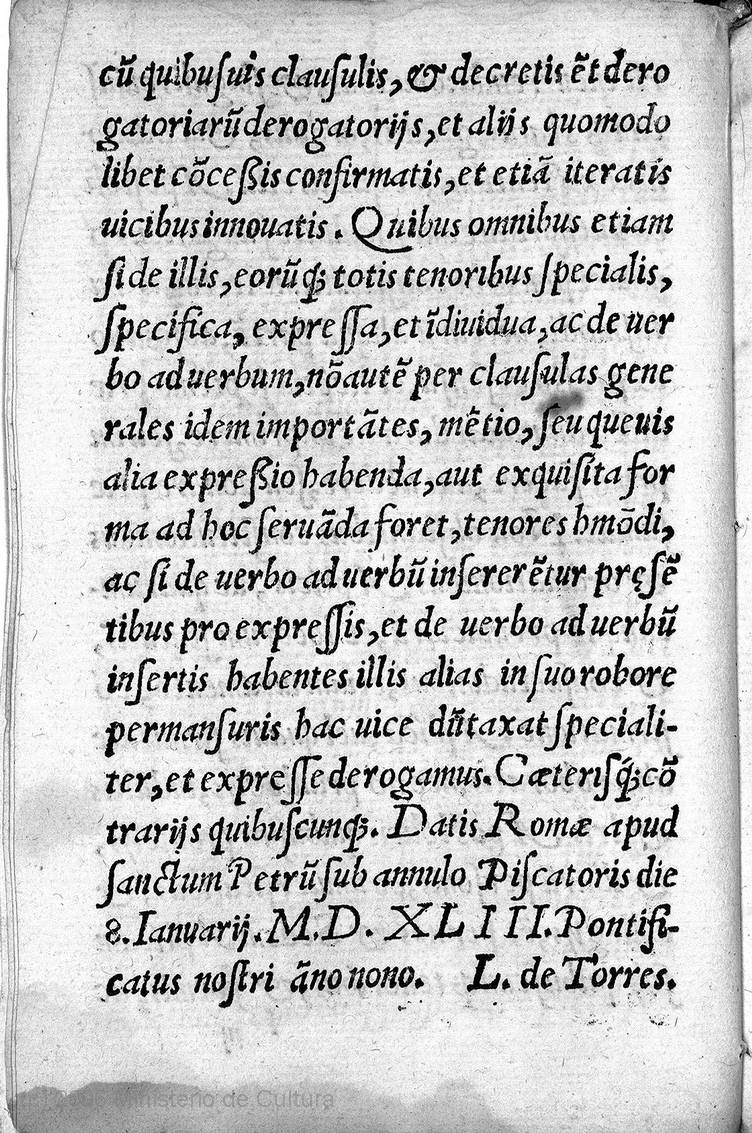 cũ quibuſuis clauſulis, & decretis ẽt dero
gatoriarũ derogatorijs, et aliis quomodo
libet cõceßis confirmatis, et etiã iteratis
uicibus innouatis. Quibus omnibus etiam
ſi de illis, eorũq; totis tenoribus ſpecialis,
ſpecifica, expreſſa, et ĩdiuidua, ac de uer
bo ad uerbum, nõ autẽ per clauſulas gene
rales idem importãtes, mẽtio, ſeu queuis
alia expreßio habenda, aut exquiſita for
ma ad hoc ſeruãda foret, tenores hmõdi,
ac ſi de uerbo ad uerbũ inſererẽtur pręſẽ
tibus pro expreſſis, et de uerbo ad uerbũ
inſertis habentes illis alias in ſuo robore
permanſuris hac uice dũtaxat ſpeciali-
ter, et expreſſe derogamus. Cæteriſq́; cõ
trarijs quibuſcunq;. Datis Romæ apud
ſanctum Petrũ ſub annulo Piſcatoris die
8. Ianuarij. M. D. XLIII. Pontifi-
catus noſtri ãno nono. L. de Torres.
Ministerio de Cultura